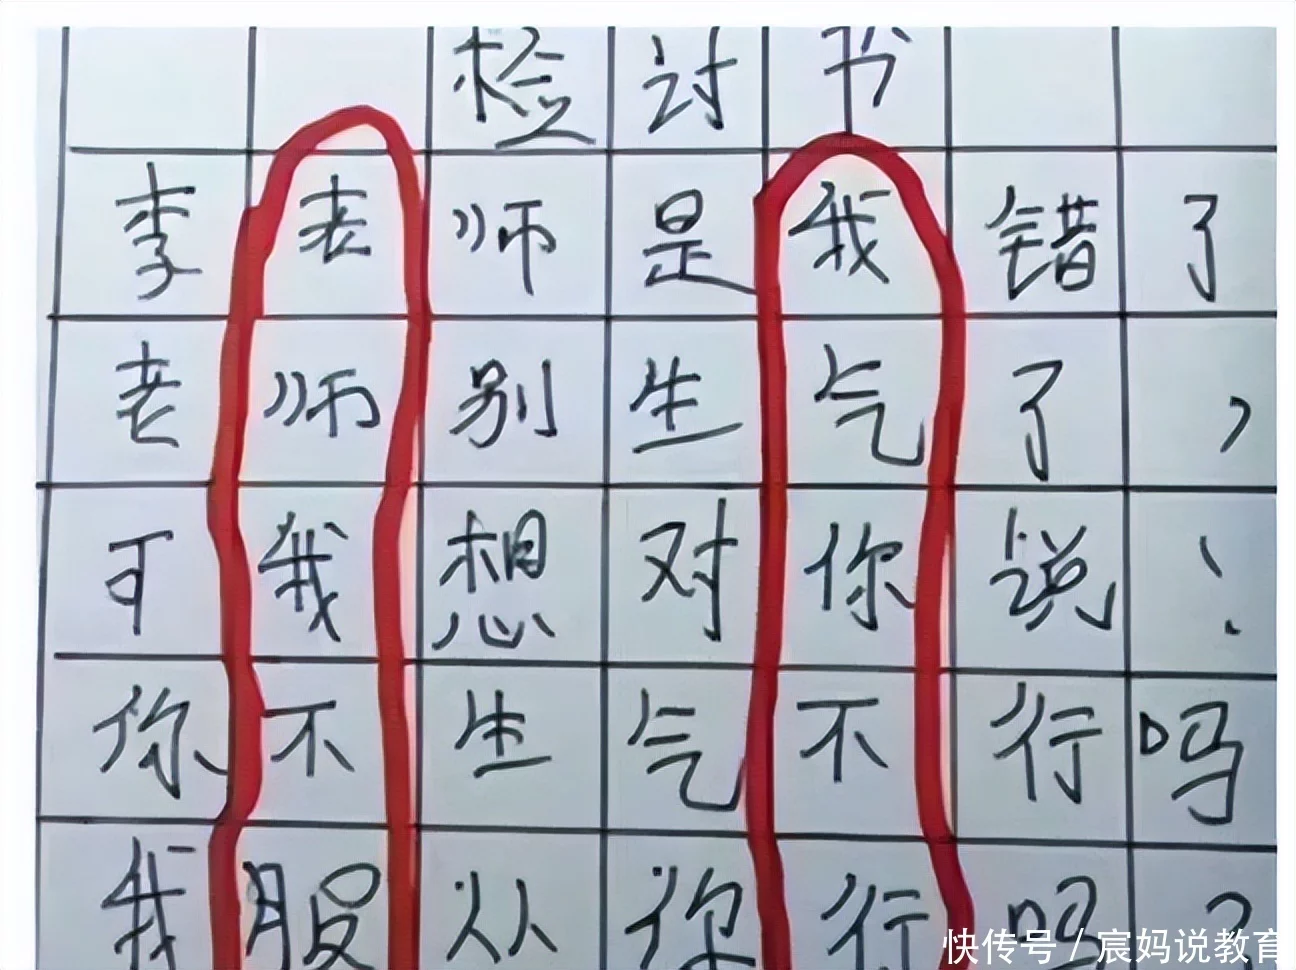 检讨书
李老师是我错了
老师别生气了，
可我想对你说！
你不生气不行吗
我服从你行吗？
快传号 / 宸妈说教育